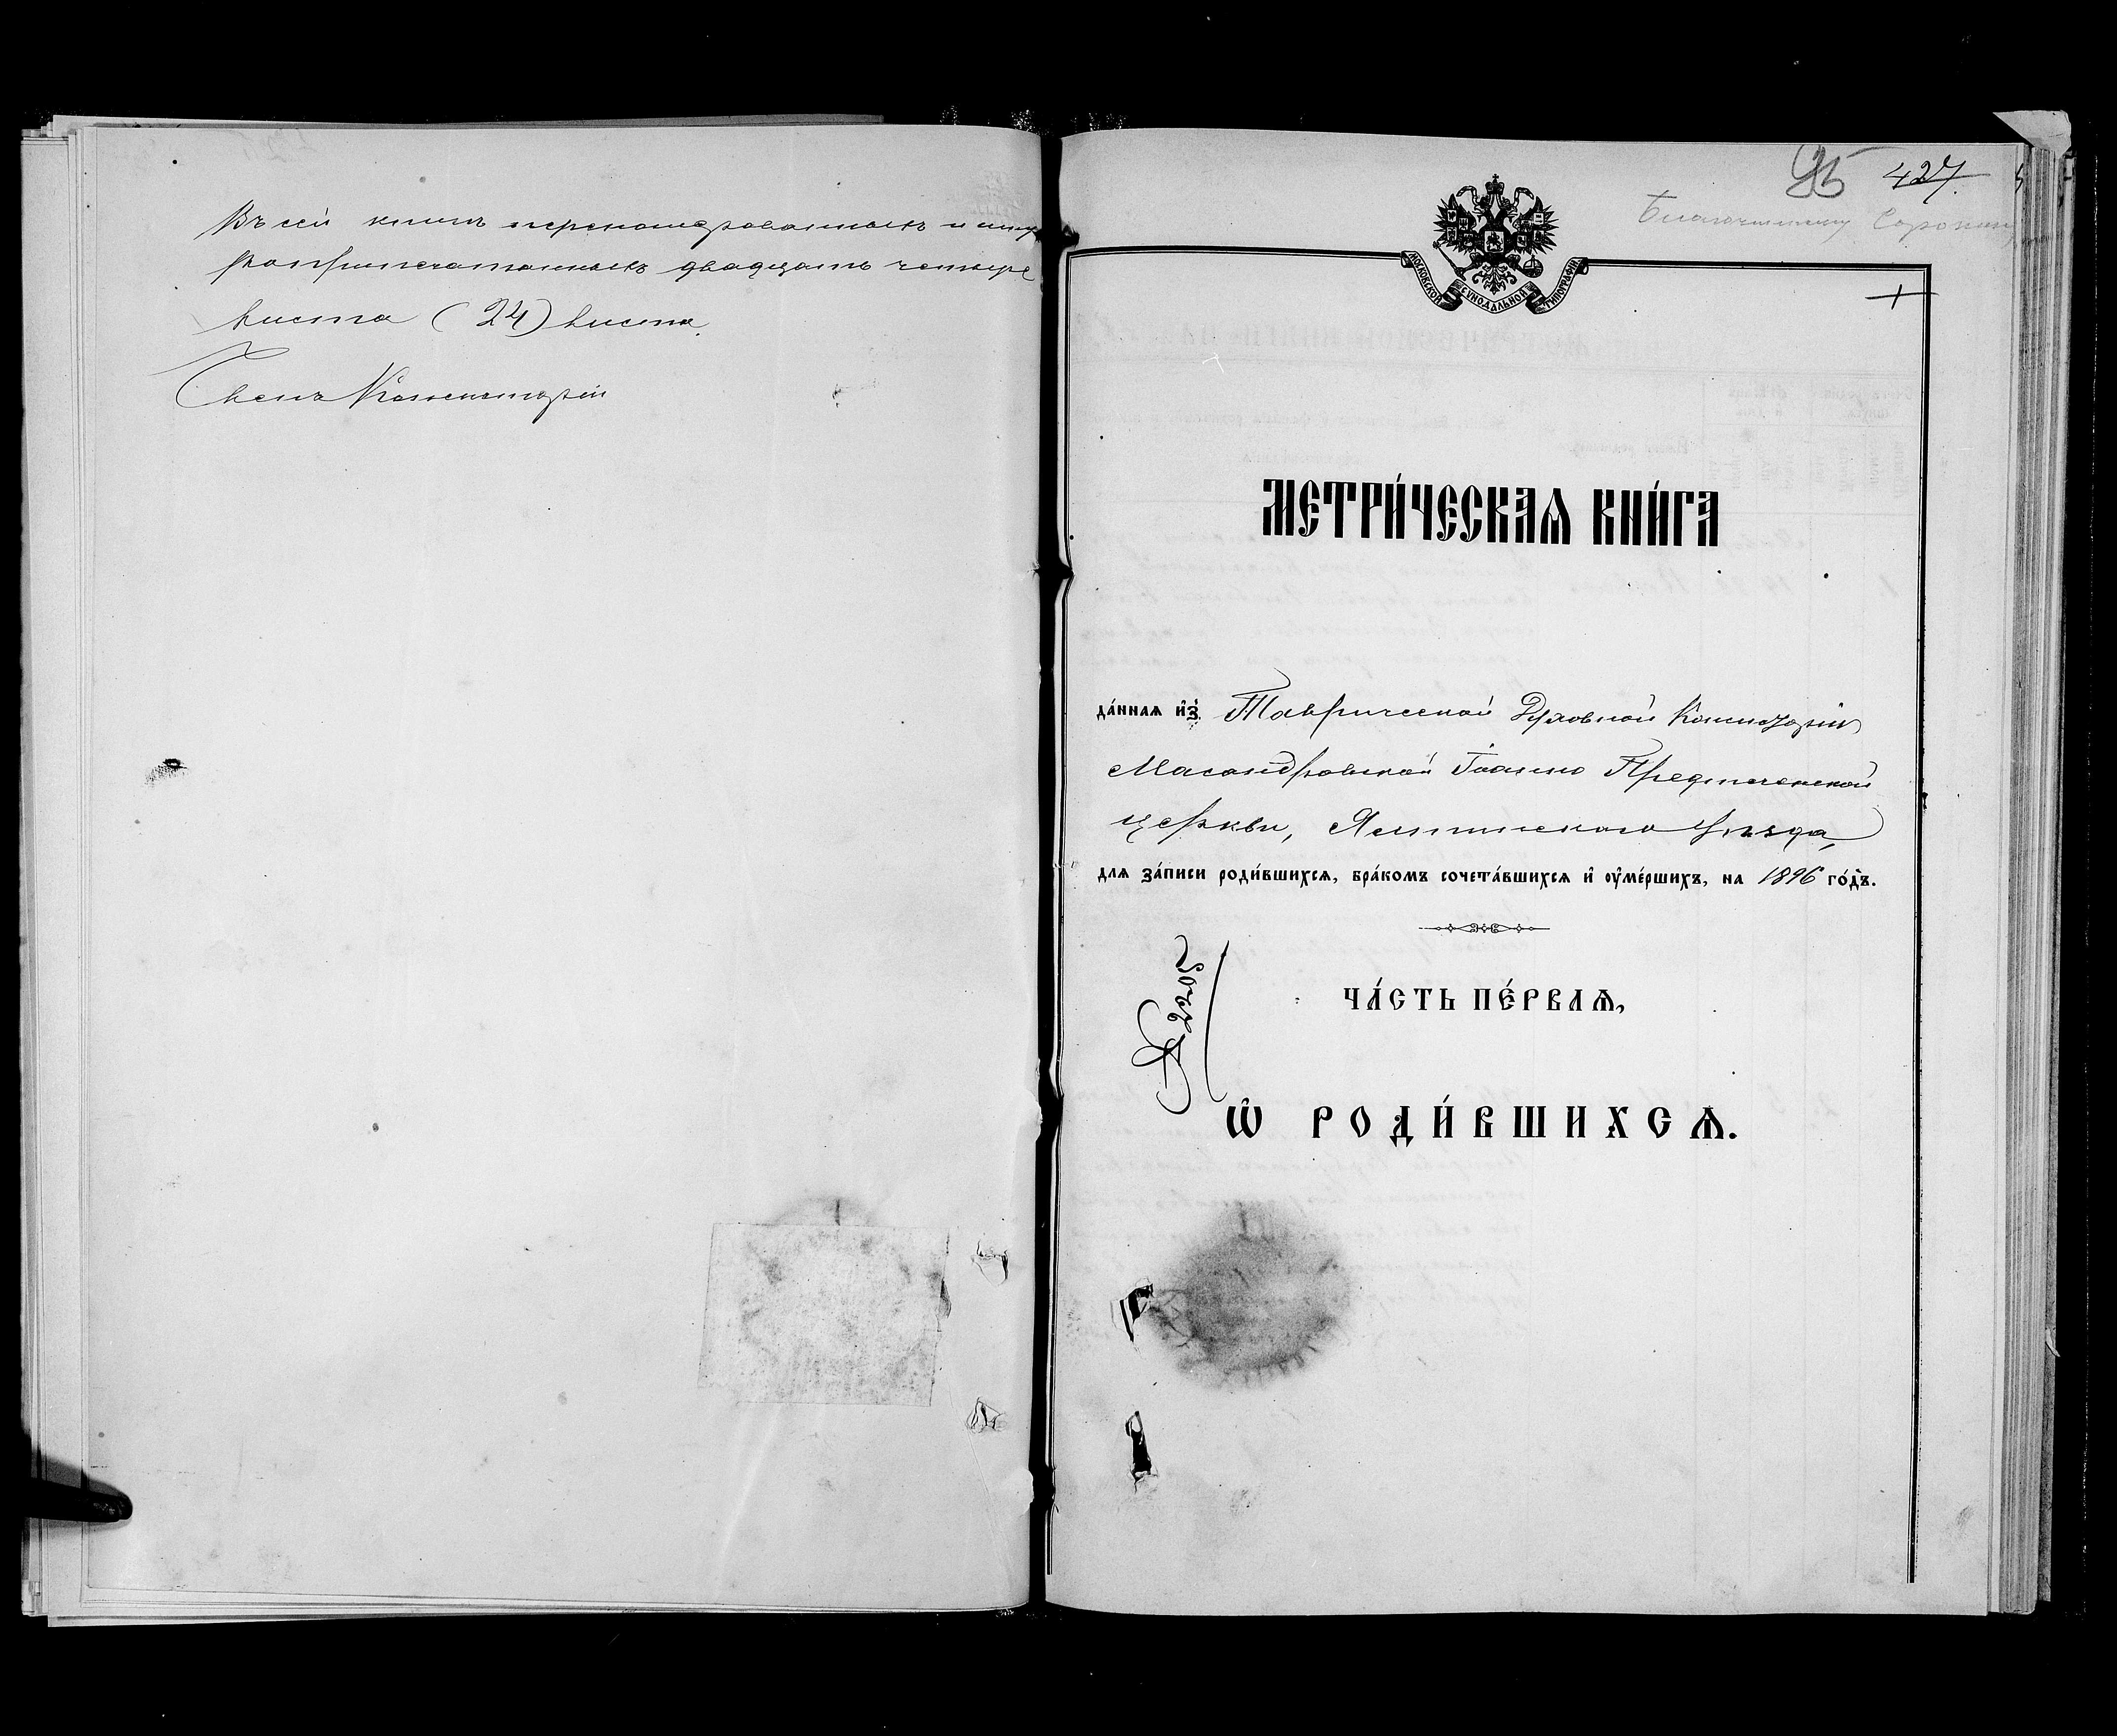 Въ сей книгѣ перенумерованныхъ и шну
роприпечатанныхъ двадцать четыре
листа (24) листа.
Членъ Консисторіи
427.
Благочинному
МОСКОВСКОЙ СѴНОДАЛЬНОЙ ТИПОГРАФІИ
МЕТРИ́ЧЕСКАѦ КНИ́ГА
да́ннаѧ и҆з̾ Таврической Духовной Консисторіи
Масандровской Іоанно Предтеченской
церкви, Ялтинскаго уѣзда,
длѧ за́писи роди́вшихсѧ, бра́комъ сочета́вшихсѧ и҆ оу҆ме́ршихъ, на 1896 го́дъ.
№ 2205
ЧА́СТЬ ПЕ́РВАѦ,
Ѡ҆ РОДИ́ВШИХСѦ.